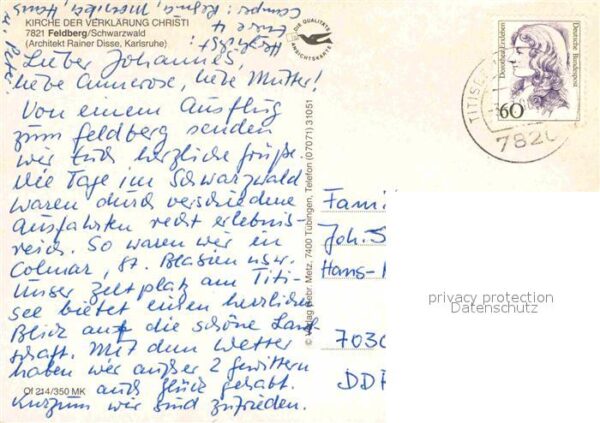 KIRCHE DER VERKLÄRUNG CHRISTI
7821 Feldberg/Schwarzwald
(Architekt Rainer Disse, Karlsruhe)
DIE QUALITÄTS
ANSICHTSKARTE
Lieber Johannes,
liebe Annerose, liebe Mutter!
Von einem Ausflug
zum Feldberg senden
wir Euch herzliche Grüße.
Die Tage im Schwarzwald
waren durch verschiedene
Ausfahrten recht erlebnis-
reich. So waren wir in
Colmar, St. Blasien usw.
Unser Zeltplatz am Titi-
see bietet einen herrlichen
Blick auf die schöne Land-
schaft. Mit dem Wetter
haben wir außer 2 Gewittern
auch Glück gehabt.
Kurzum wir sind zufrieden.
Herzlichst
Eure
Of 214/350 MK
© Verlag Gebr. Metz, 7400 Tübingen, Telefon (07071) 31051
Dorothea Erxleben
Deutsche Bundespost
60
TITISEE
7820
Fami
Joh. S
Hans-
7030
DDR
privacy protection
Datenschutz